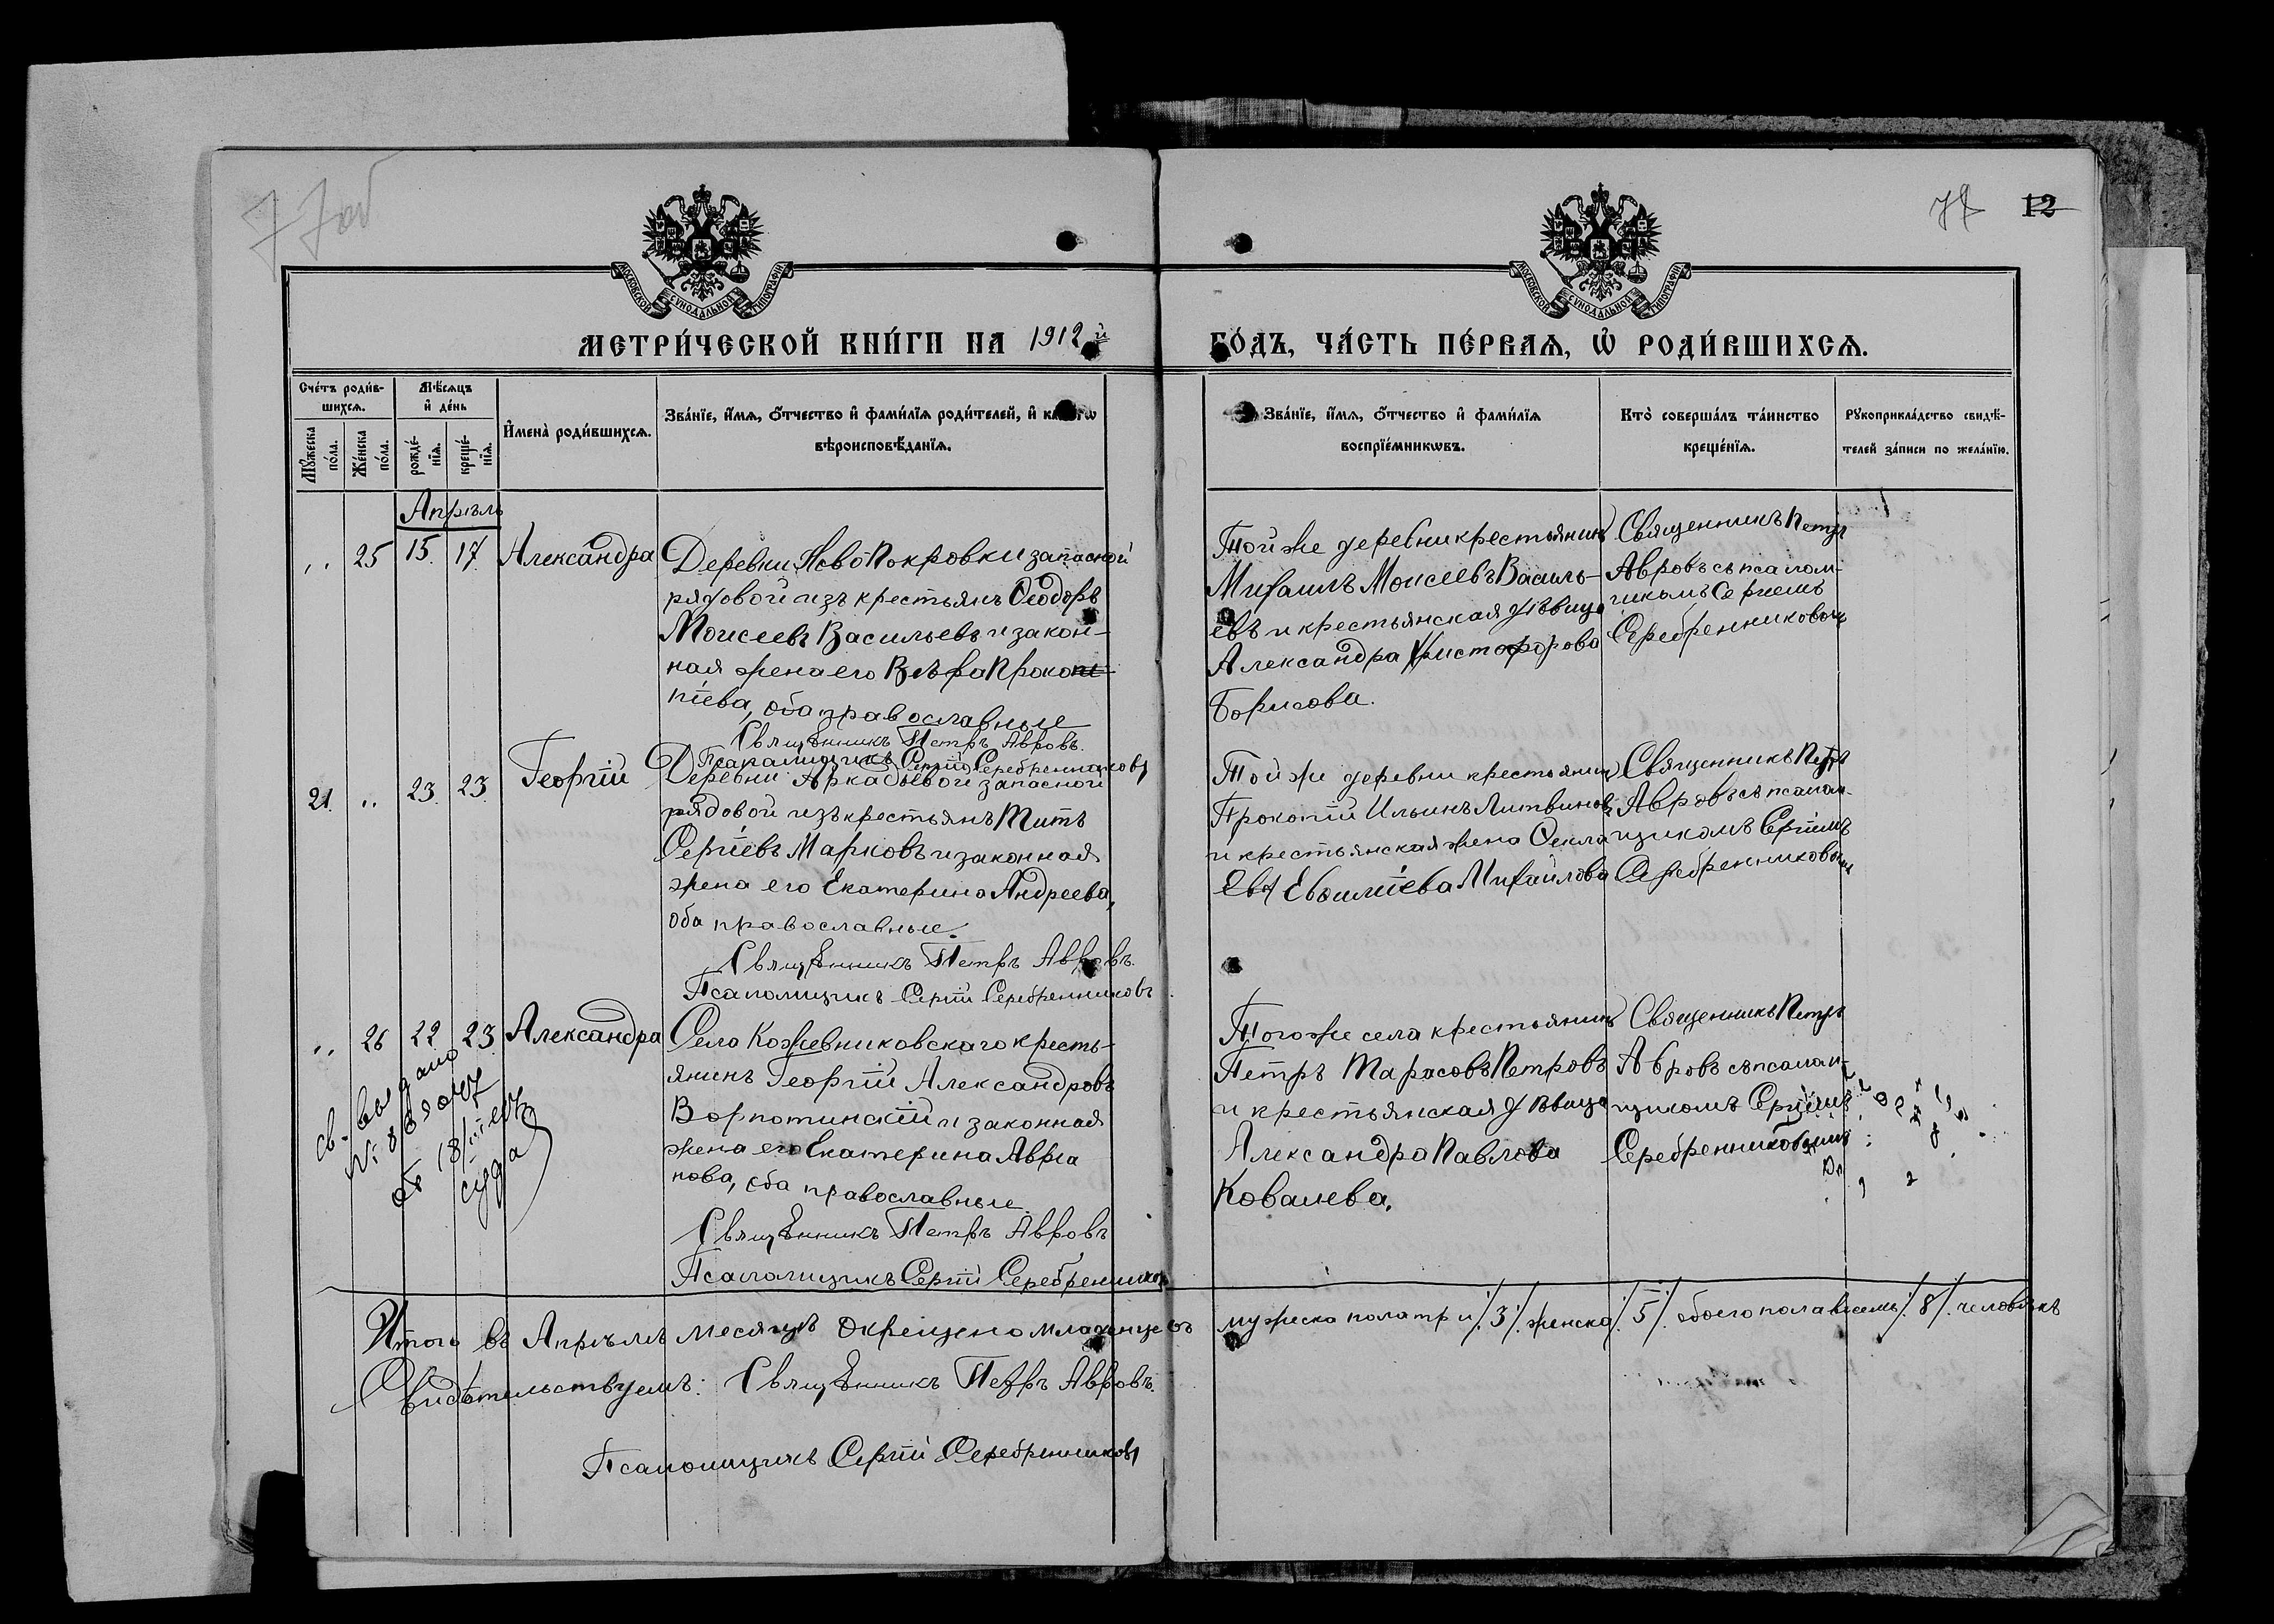 77об
77 12
МОСКОВСКОЙ СѴНОДАЛЬНОЙ ТИПОГРАФІИ
МОСКОВСКОЙ СѴНОДАЛЬНОЙ ТИПОГРАФІИ
МЕТРИ́ЧЕСКОЙ КНИ́ГИ НА 1912й
ГО́ДЪ, ЧА́СТЬ ПЕ́РВАѦ, Ѡ҆ РОДИ́ВШИХСѦ.
Сче́тъ роди́в-
шихсѧ.
Мꙋ́жеска по́ла.
Же́нска по́ла.
Мѣ́сѧцъ
и҆ де́нь
рожде́-нїѧ.
креще́-нїѧ.
И҆мена̀ роди́вшихсѧ.
Зва́нїе, и҆́мѧ, ѻ҆́тчество и҆ фами́лїѧ роди́телей, и҆ како́гѡ
вѣроисповѣ́данїѧ.
Зва́нїе, и҆́мѧ, ѻ҆́тчество и҆ фами́лїѧ
воспрїе́мникѡвъ.
Кто̀ соверша́лъ та́инство
креще́нїѧ.
Рꙋкоприкла́дство свидѣ́-
телей за́писи по жела́нїю.
Апрѣль
,, 25 15. 17. Александра
Деревни Ново Покровки запасной
рядовой изъ крестьянъ Ѳеодоръ
Моисеевъ Васильевъ и закон-
ная жена его Вѣра Прокопі-
піева, оба православные
Священникъ Петръ Авровъ.
Псаломщикъ Сергій Серебренниковъ
Той же деревни крестьянинъ
Михаилъ Моисеевъ Василь-
евъ и крестьянская дѣвица
Александра Христофорова
Борисова.
Священникъ Петръ
Авровъ съ псалом-
щикомъ Сергіемъ
Серебренниковымъ
21. ,, 23. 23. Георгій
Деревни Аркадьевой запасной
рядовой изъ крестьянъ Титъ
Сергіевъ Марковъ и законная
жена его Екатерина Андреева,
оба православные.
Священникъ Петръ Авровъ.
Псаломщикъ Сергій Серебренниковъ
Той же деревни крестьянинъ
Прокопій Ильинъ Литвиновъ
и крестьянская жена Ѳекла
Евѳиміева Михайлова
Священникъ Петръ
Авровъ съ псалом-
щикомъ Сергіемъ
Серебренниковымъ
,, 26 22 23. Александра
Село Кожевниковскаго кресть-
янинъ Георгій Александровъ
Ворпотинскій и законная
жена его Екатерина Авра
нова, оба православные.
Священникъ Петръ Авровъ
Псаломщикъ Сергій Серебренниковъ
Того же села крестьянинъ
Петръ Тарасовъ Петровъ
и крестьянская дѣвица
Александра Павлова
Ковалева.
Священникъ Петръ
Авровъ съ псалом-
щикомъ Сергіемъ
Серебренниковымъ
св-во выдано
суда
Итого въ Апрѣлѣ месяцѣ окрещено младенцевъ мужеска пола три /.3/. женска /.5/. обоего пола восемь /.8/. человѣкъ
Свидѣтельствуемъ: Священникъ Петръ Авровъ.
Псаломщикъ Сергій Серебренниковъ